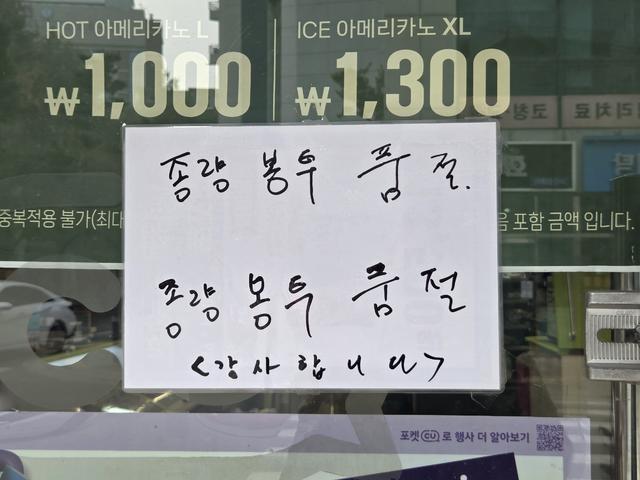 HOT 아메리카노 L
₩1,000
ICE 아메리카노 XL
₩1,300
종량 봉투 품 절.
중복적용 불가(최대
포함 금액 입니다.
종량 봉투 품 절
<감사합니다>
포켓CU로 행사 더 알아보기